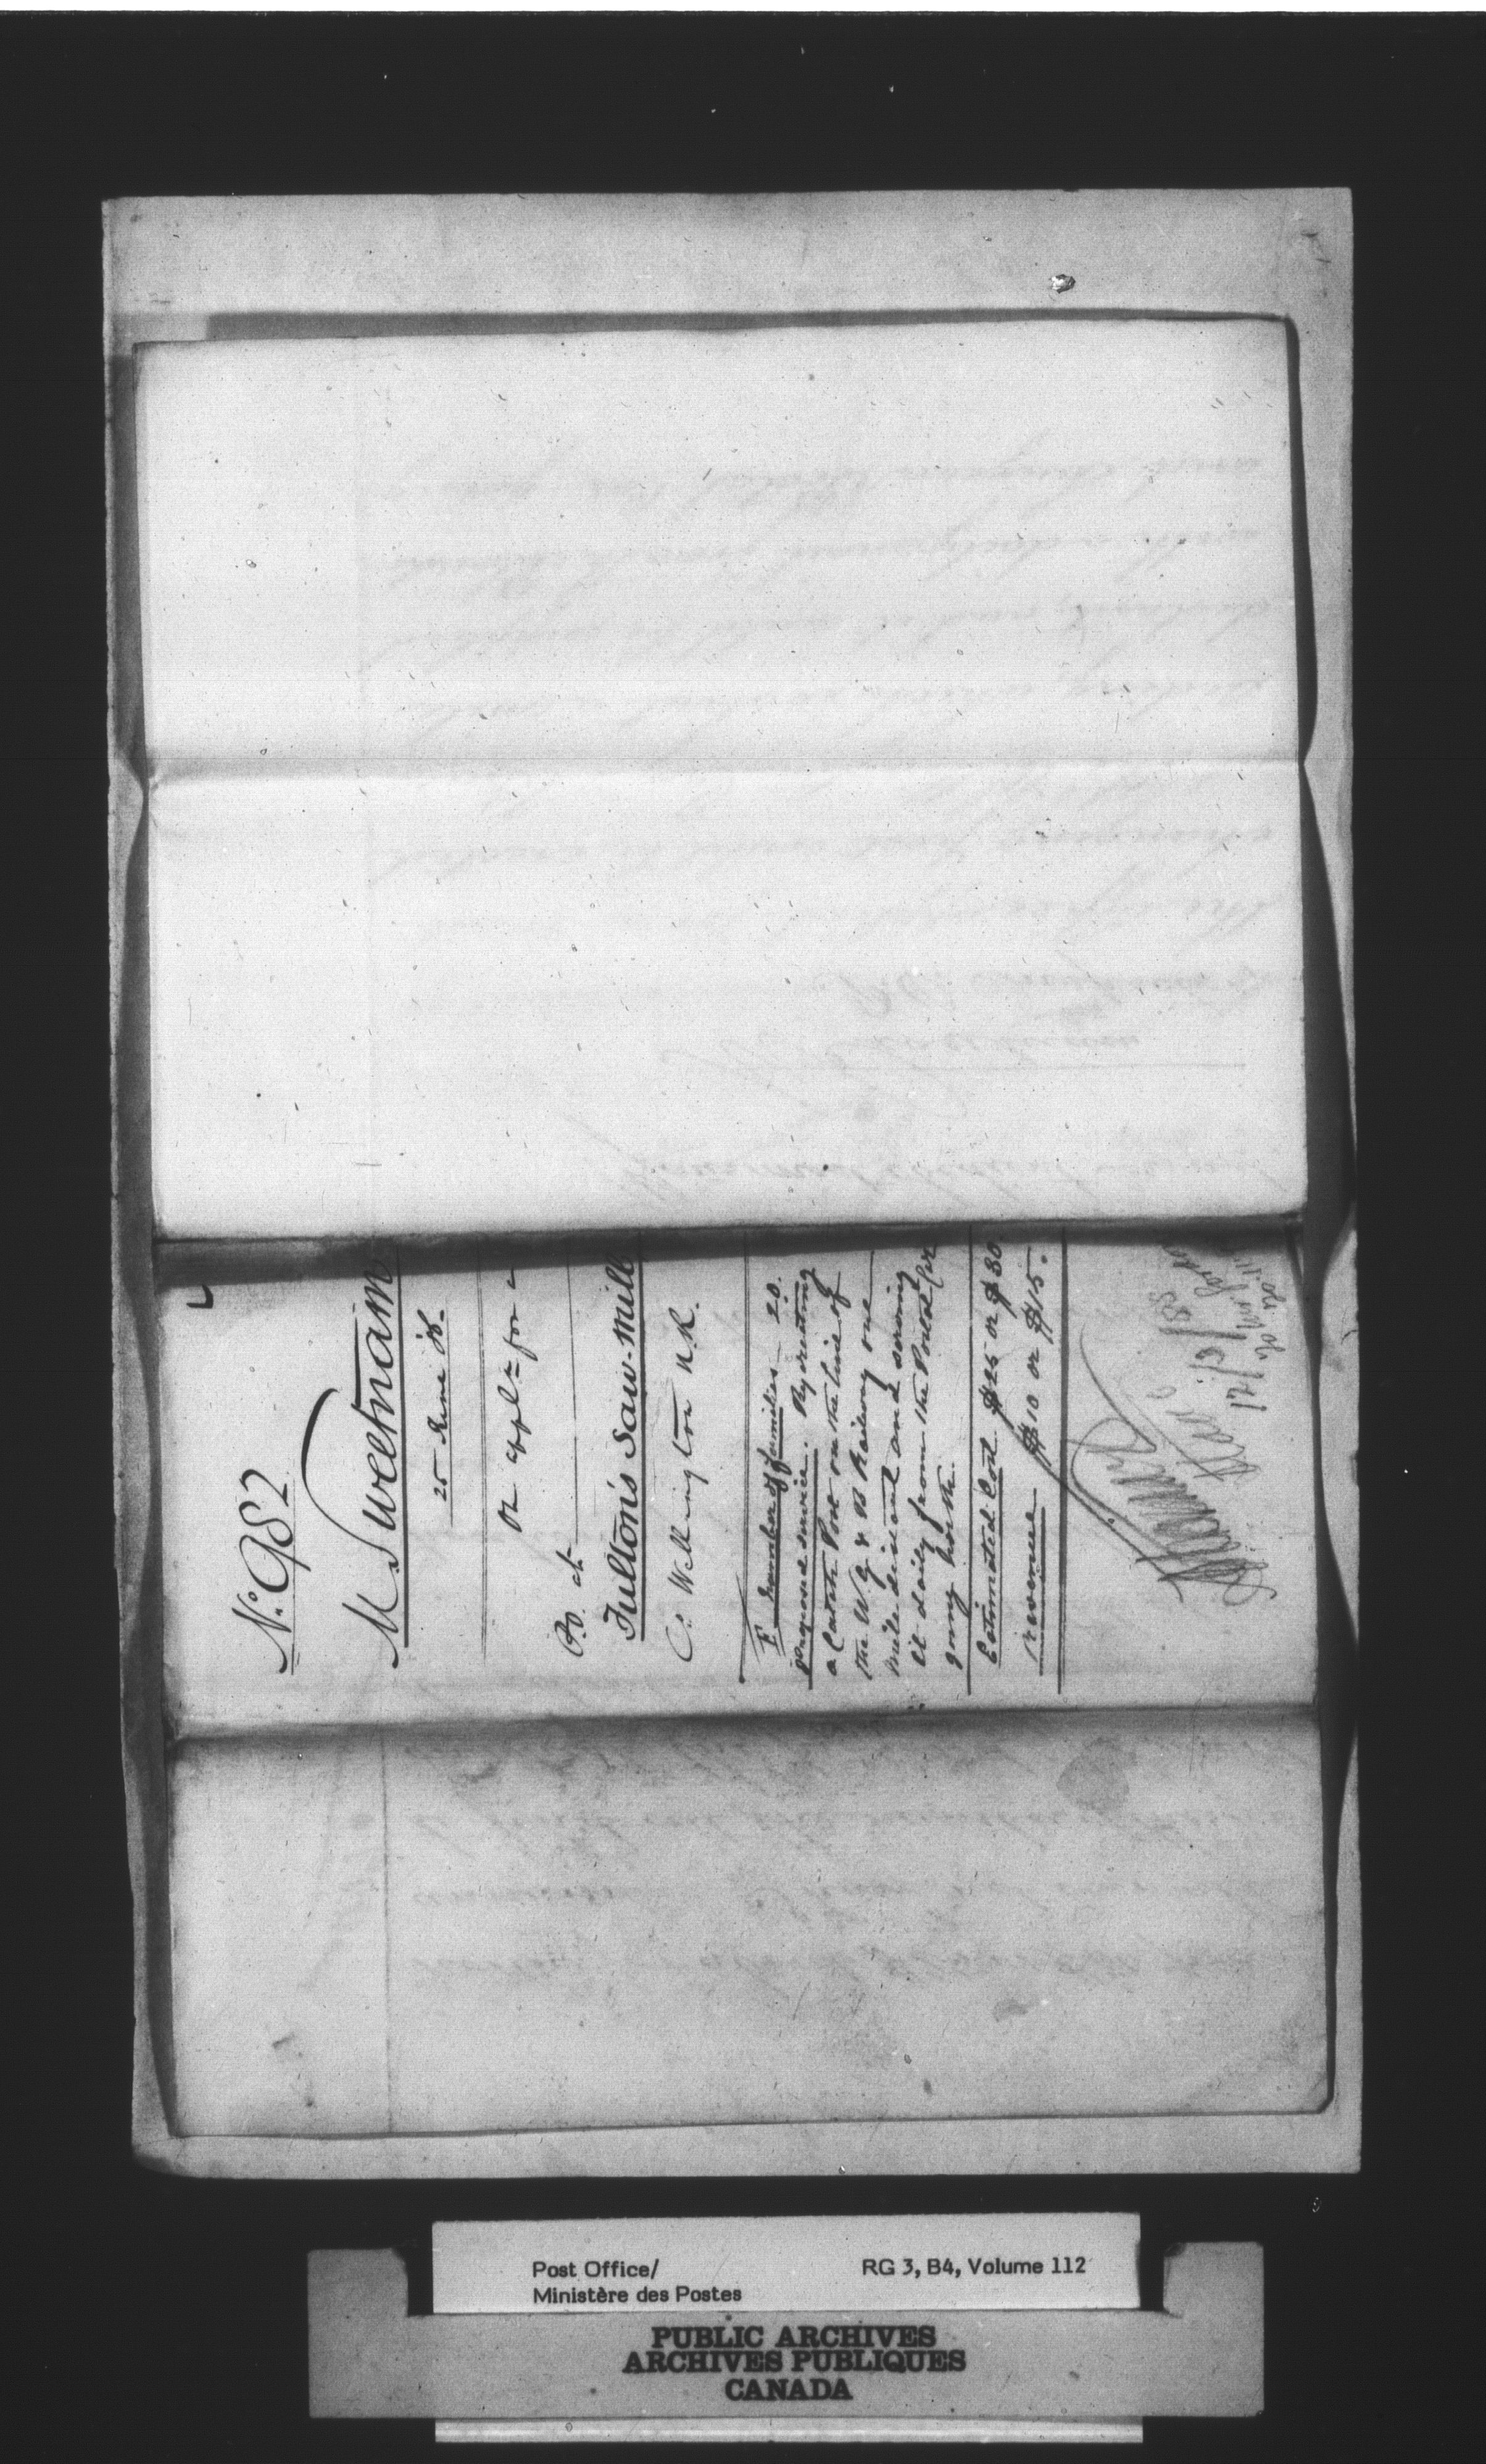 No. 982
M Sweetnam
25 June 78.
On appln for a
P.O. at
Fulton's Saw-Mill
Co. Wellington N.R.
F number of families - 20.
proposed service. By erecting
a Catch Post on the line of
the W. G & B Railway one
mile distant and serving
it daily from the Postal Car
going North.
Estimated Cost $25 or $30.
revenue $10 or $15.
Post Office/
Ministère des Postes
RG 3, B4, Volume 112
PUBLIC ARCHIVES
ARCHIVES PUBLIQUES
CANADA